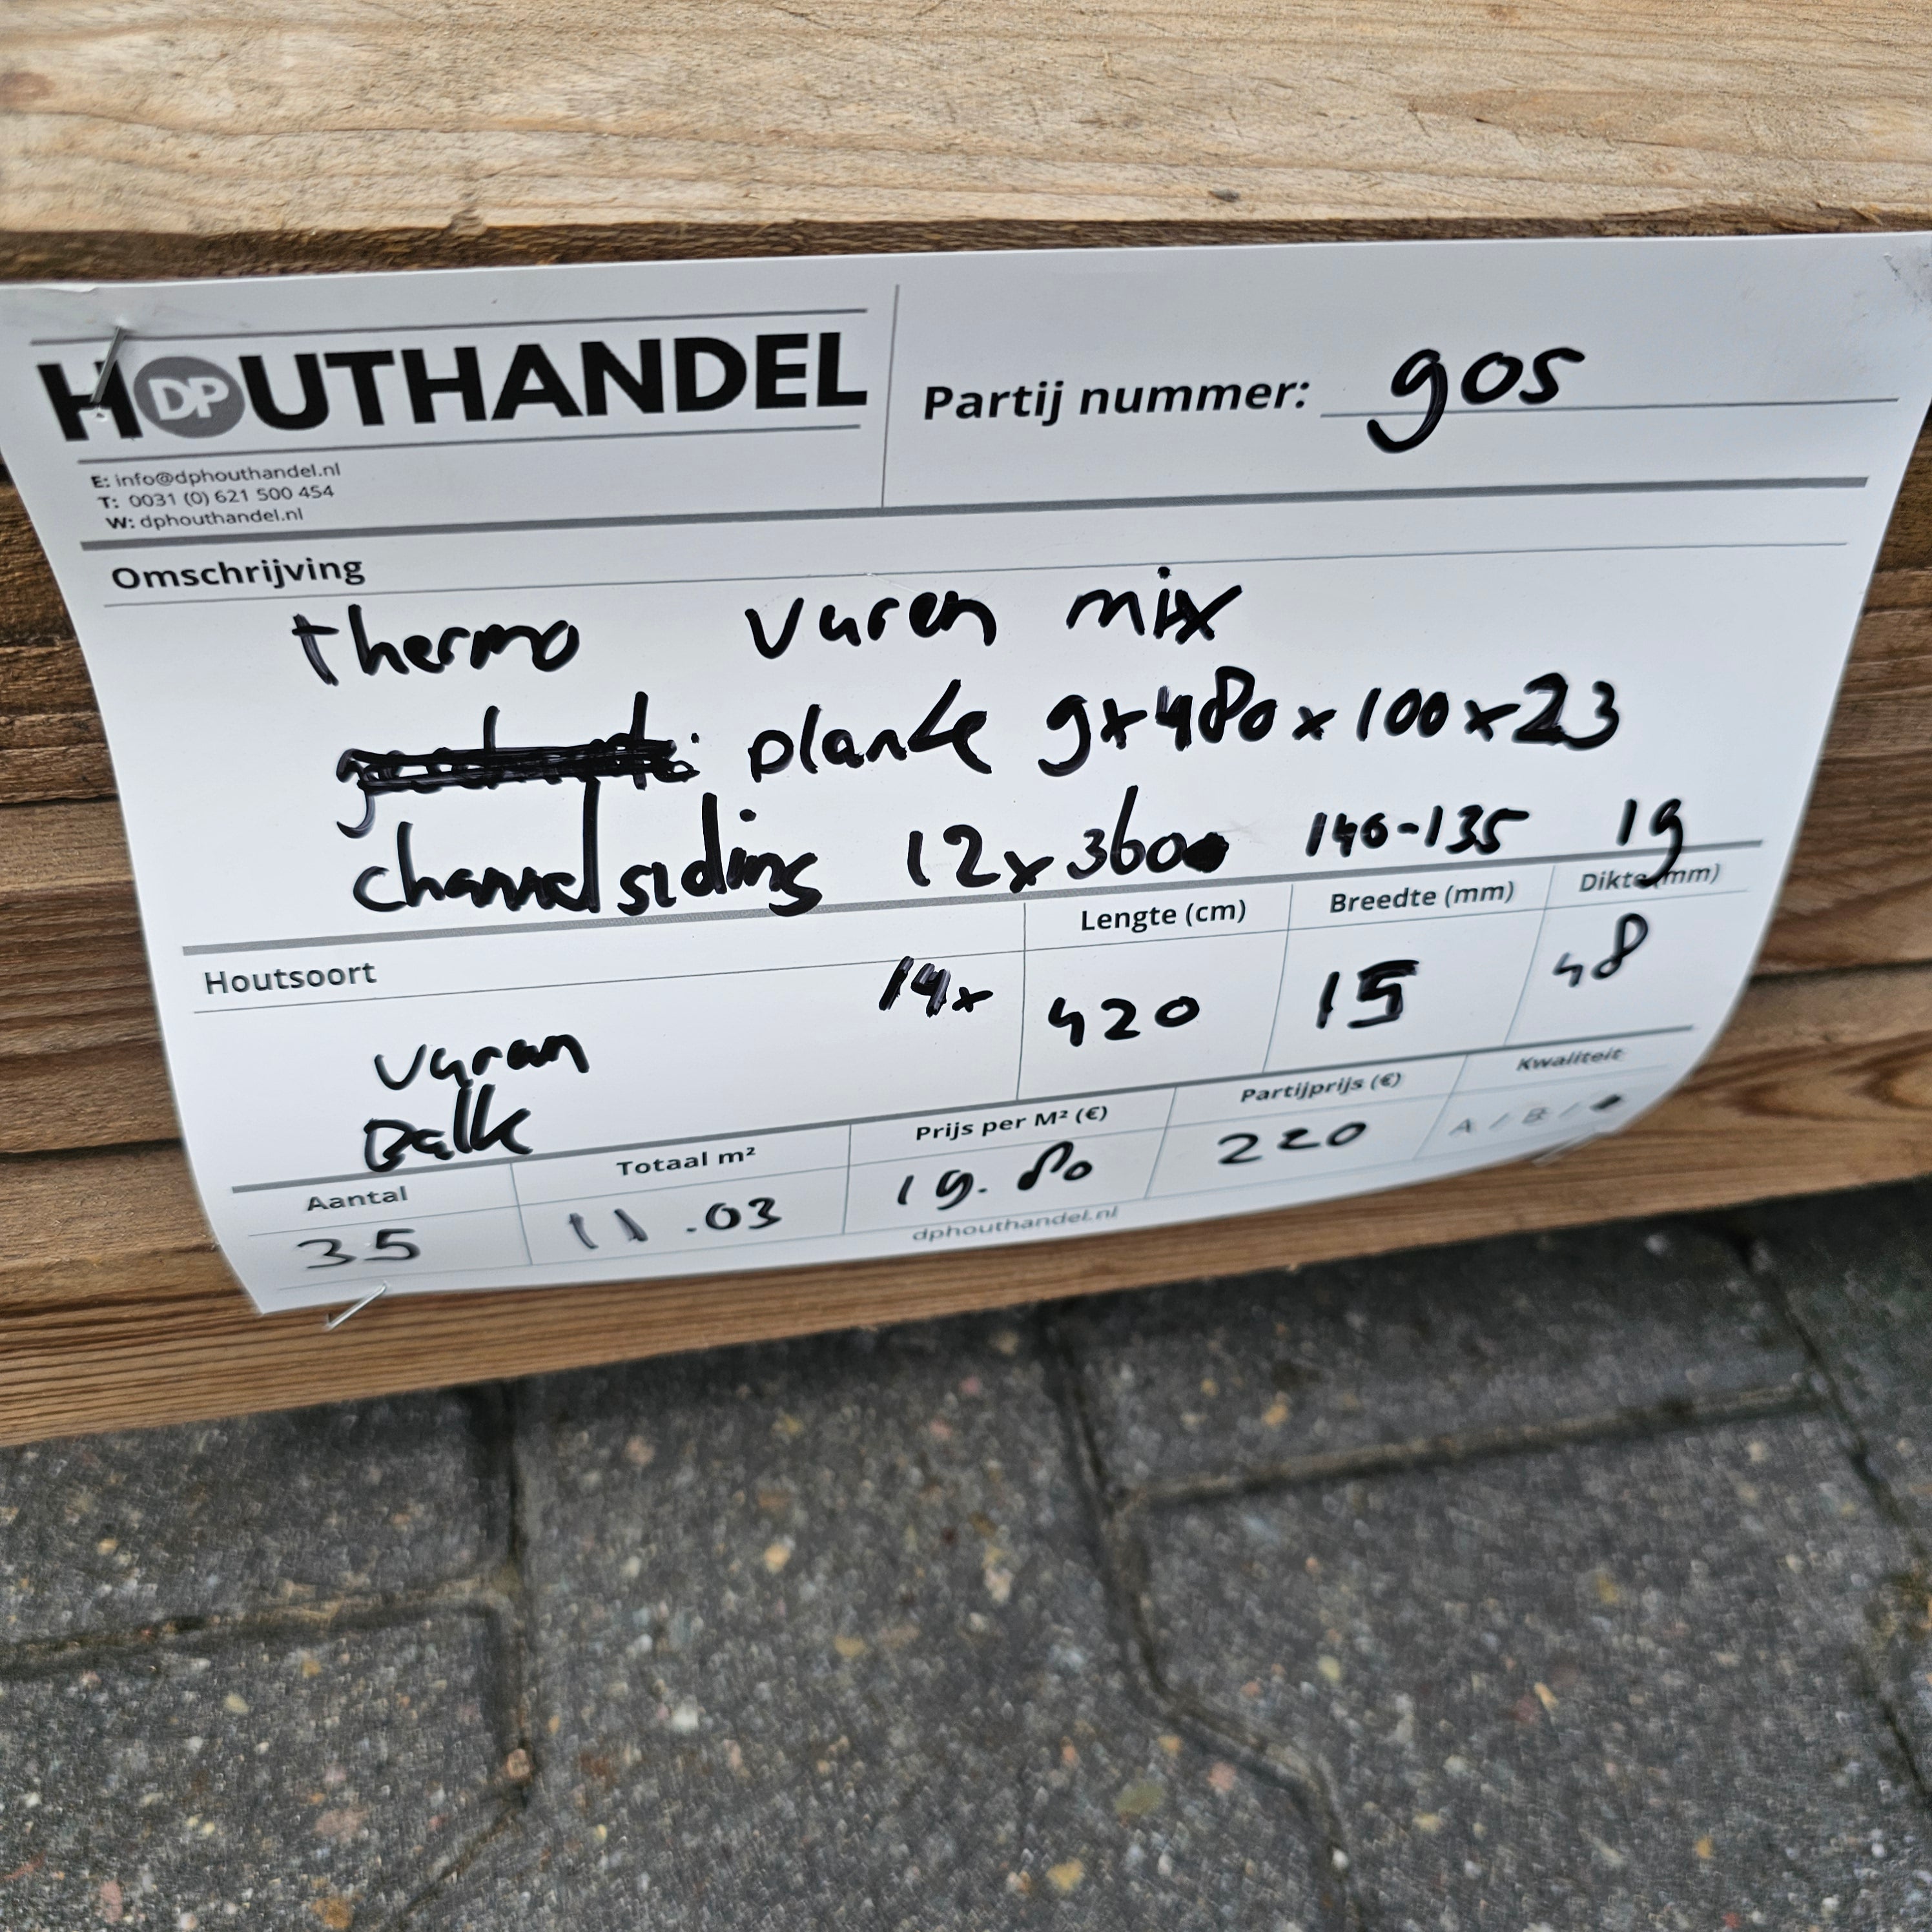 HOUTHANDEL
DP
Partij nummer: 905
E: info@dphouthandel.nl
T: 0031 (0) 621 500 454
W: dphouthandel.nl
Omschrijving
thermo vuren mix
planke 9x480x100x23
channelsiding 12x360 140-135 19
Houtsoort
Lengte (cm)
Breedte (mm)
Dikte (mm)
vuren
Balk
14x
420
15
48
Aantal
Totaal m²
Prijs per M² (€)
Partijprijs (€)
Kwaliteit
35
11.03
19.80
220
A / B /
dphouthandel.nl